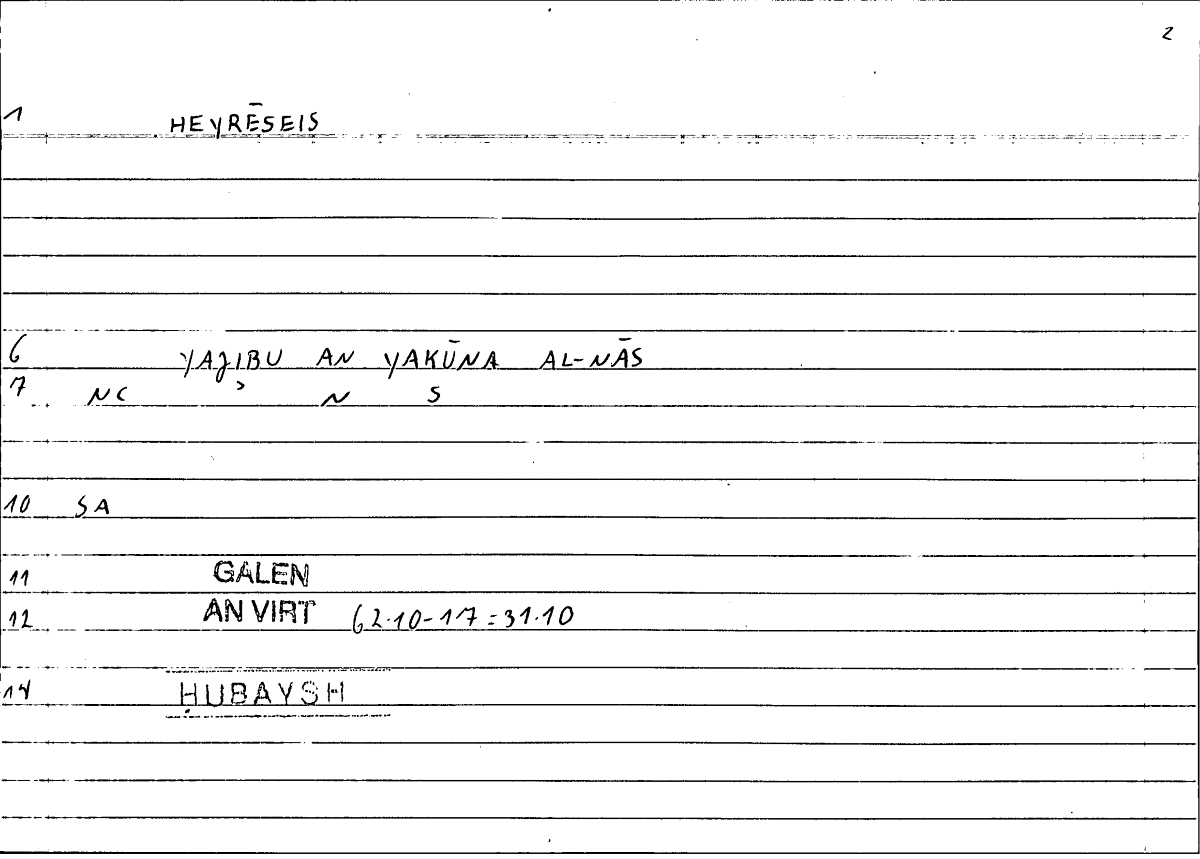 2
1 HEYRĒSEIS
6 YAJIBU AN YAKŪNA AL-NĀS
7 NC ɔ N S
10 SA
11 GALEN
12 AN VIRT 62.10-17=31.10
14 ḤUBAYSH